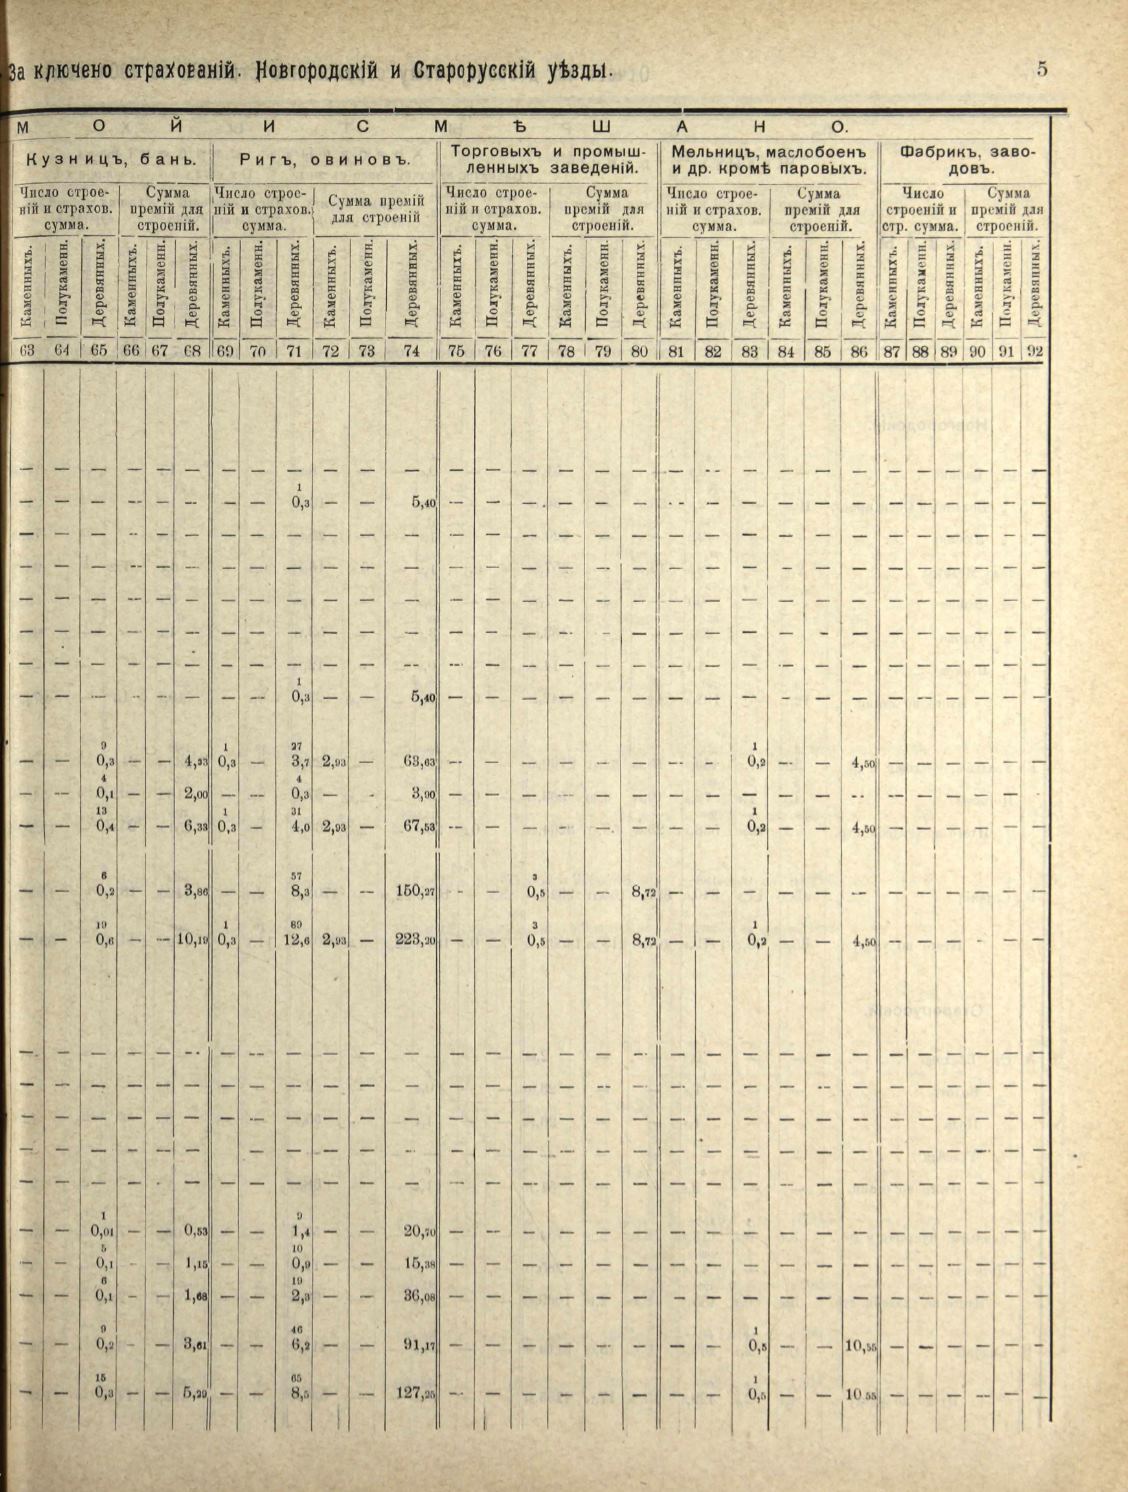 За ключено страхованій. Новгородскій и Старорусскій уѣзды. 5
М О Й И С М Ѣ Ш А Н О.
Кузницъ, бань. Ригъ, овиновъ. Торговыхъ и промыш-ленныхъ заведеній. Мельницъ, маслобоенъ и др. кромѣ паровыхъ. Фабрикъ, заво-довъ.
Число строе-ній и страхов. сумма. Сумма премій для строеній. Число строе-ній и страхов. сумма. Сумма премій для строеній Число строе-ній и страхов. сумма. Сумма премій для строеній. Число строе-ній и страхов. сумма. Сумма премій для строеній. Число строеній и стр. сумма. Сумма премій для строеній.
Каменныхъ. Полукаменн. Деревянныхъ. Каменныхъ. Полукаменн. Деревянныхъ. Каменныхъ. Полукаменн. Деревянныхъ. Каменныхъ. Полукаменн. Деревянныхъ. Каменныхъ. Полукаменн. Деревянныхъ. Каменныхъ. Полукаменн. Деревянныхъ. Каменныхъ. Полукаменн. Деревянныхъ. Каменныхъ. Полукаменн. Деревянныхъ. Каменныхъ. Полукаменн. Деревянныхъ. Каменныхъ. Полукаменн. Деревянныхъ.
63 64 65 66 67 68 69 70 71 72 73 74 75 76 77 78 79 80 81 82 83 84 85 86 87 88 89 90 91 92
— — — — — — — — — — — — — — — — — — — — — — — — — — — — — —
1
— — — — — — — — 0,3 — — 5,40 — — — — — — — — — — — — — — — — — —
— — — — — — — — — — — — — — — — — — — — — — — — — — — — — —
— — — — — — — — — — — — — — — — — — — — — — — — — — — — — —
— — — — — — — — — — — — — — — — — — — — — — — — — — — — — —
— — — — — — — — — — — — — — — — — — — — — — — — — — — — — —
— — — — — — — — — — — — — — — — — — — — — — — — — — — — — —
1
— — — — — — — — 0,3 — — 5,40 — — — — — — — — — — — — — — — — — —
9 1 27 1
— — 0,3 — — 4,33 0,3 — 3,7 2,93 — 63,63 — — — — — — — — 0,2 — — 4,50 — — — — — —
4 4
— — 0,1 — — 2,00 — — 0,3 — — 3,90 — — — — — — — — — — — — — — — — — —
13 1 31 1
— — 0,4 — — 6,33 0,3 — 4,0 2,93 — 67,53 — — — — — — — — 0,2 — — 4,50 — — — — — —
6 57 3
— — 0,2 — — 3,86 — — 8,3 — — 150,27 — — 0,5 — — 8,72 — — — — — — — — — — — —
19 1 89 3 1
— — 0,6 — — 10,19 0,3 — 12,6 2,93 — 223,20 — — 0,5 — — 8,72 — — 0,2 — — 4,50 — — — — — —
— — — — — — — — — — — — — — — — — — — — — — — — — — — — — —
— — — — — — — — — — — — — — — — — — — — — — — — — — — — — —
— — — — — — — — — — — — — — — — — — — — — — — — — — — — — —
— — — — — — — — — — — — — — — — — — — — — — — — — — — — — —
— — — — — — — — — — — — — — — — — — — — — — — — — — — — — —
1 9
— — 0,01 — — 0,53 — — 1,4 — — 20,70 — — — — — — — — — — — — — — — — — —
5 10
— — 0,1 — — 1,15 — — 0,9 — — 15,38 — — — — — — — — — — — — — — — — — —
6 19
— — 0,1 — — 1,68 — — 2,3 — — 36,08 — — — — — — — — — — — — — — — — — —
9 46 1
— — 0,2 — — 3,61 — — 6,2 — — 91,17 — — — — — — — — 0,5 — — 10,55 — — — — — —
15 65 1
— — 0,3 — — 5,29 — — 8,5 — — 127,25 — — — — — — — — 0,5 — — 10 55 — — — — — —